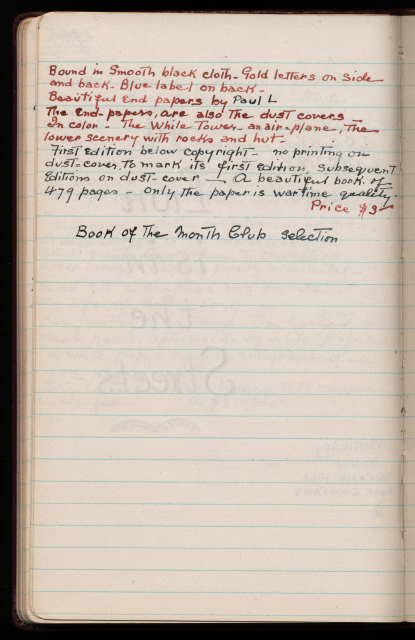 Bound in Smooth black cloth - Gold letters on side
and back. Blue label on back -
Beautiful End papers by Paul L
The End-papers, are also the dust covers -
In color - The While Tower - an air-plane, The
lower scenery with rocks and hut -
First Edition below copyright - no printing on
dust-cover, To mark its first Edition, Subsequent
Editions on dust-cover - A beautiful book of
479 pages - only the paper is wartime quality -
Price $3
Book of The Month Club selection